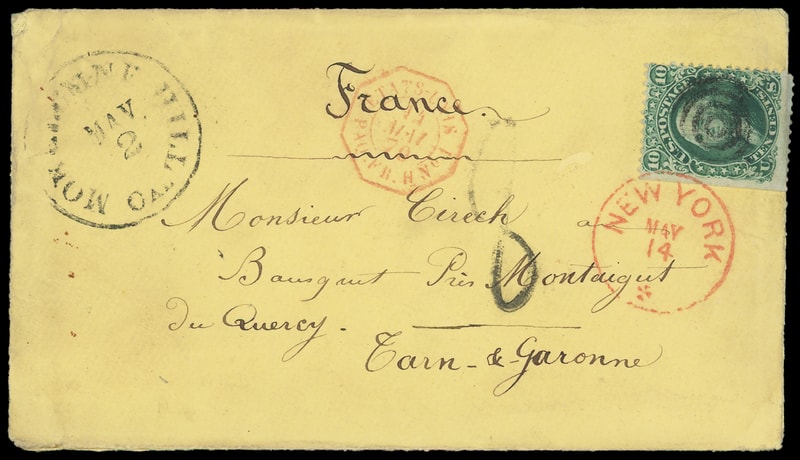 France.
Monsieur Cirech a
Bausquet Près Montaigut
du Quercy.
Tarn-&-Garonne
HILL CAL
MAY
2
ETATS-UNIS
MAI
PAQ. FR. H. Nº
NEW YORK
MAY
14
U.S. POSTAGE
10 10